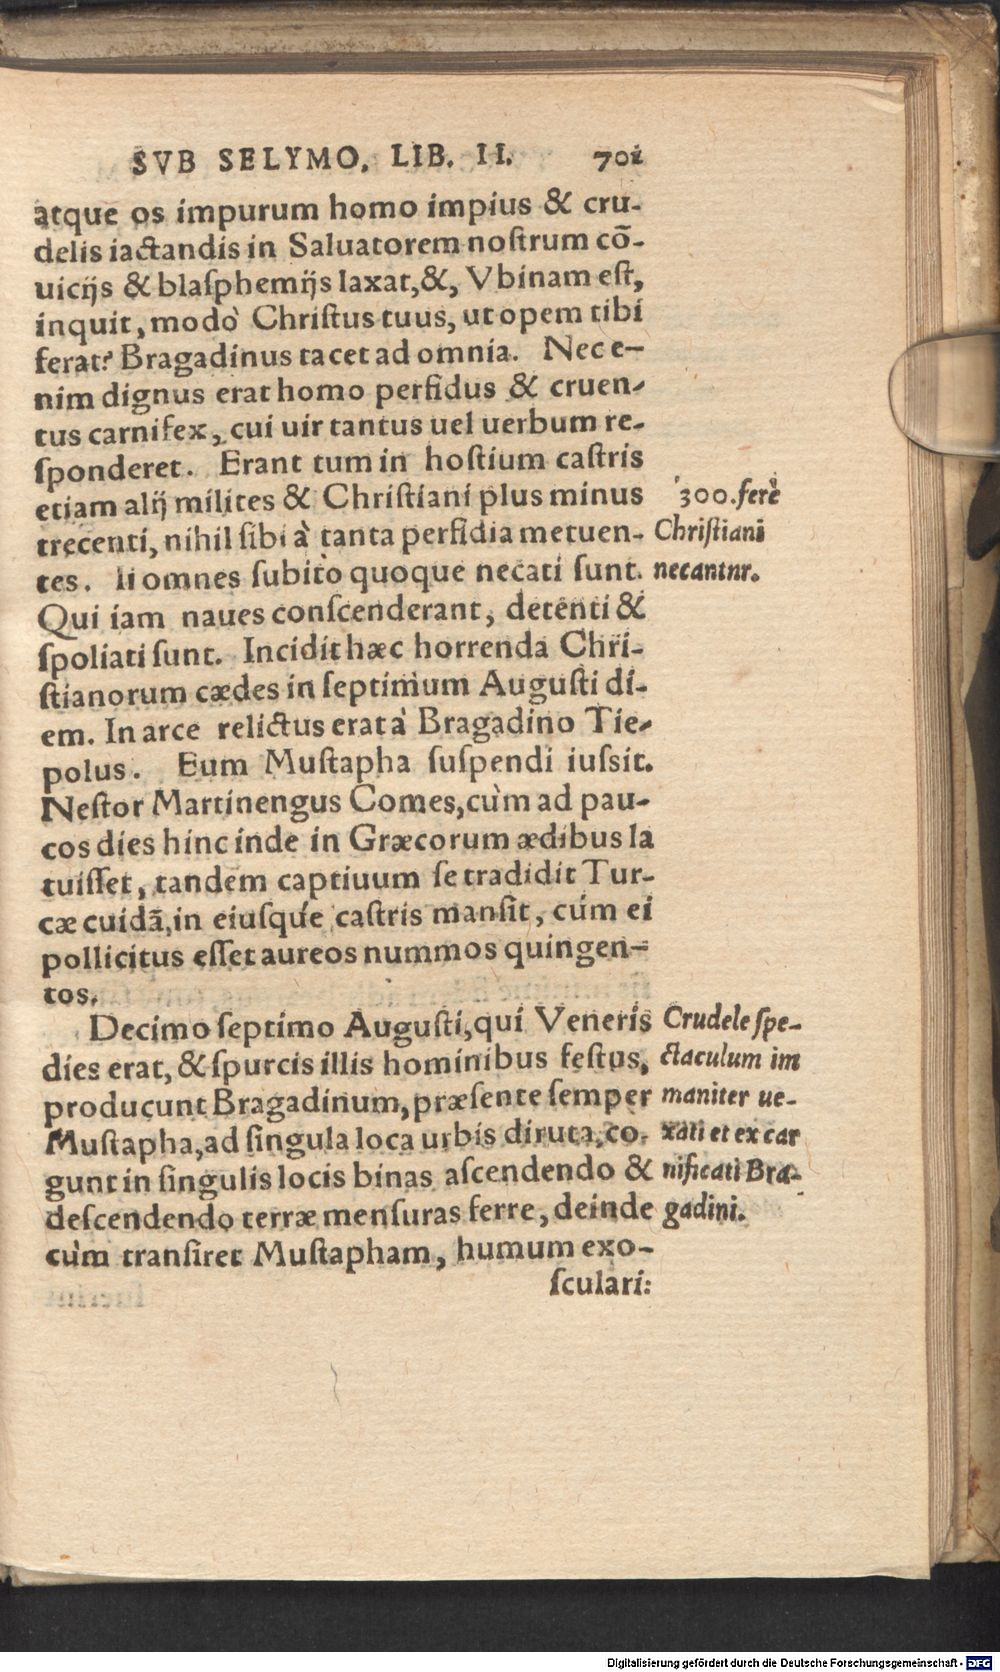 SVB SELYMO. LIB. II. 701
atque os impurum homo impius & cru-
delis iactandis in Saluatorem nostrum cõ-
uicijs & blasphemijs laxat, &, Vbinam est,
inquit, modò Christus tuus, ut opem tibi
ferat? Bragadinus tacet ad omnia. Nec e-
nim dignus erat homo perfidus & cruen-
tus carnifex, cui uir tantus uel uerbum re-
sponderet. Erant tum in hostium castris
etiam alij milites & Christiani plus minus
300. ferè
trecenti, nihil sibi à tanta perfidia metuen-
Christiani
tes. Ii omnes subitò quoque necati sunt.
necantnr.
Qui iam naues conscenderant, detenti &
spoliati sunt. Incidit hæc horrenda Chri-
stianorum cædes in septimum Augusti di-
em. In arce relictus erat à Bragadino Tie-
polus. Eum Mustapha suspendi iussit.
Nestor Martinengus Comes, cùm ad pau-
cos dies hinc inde in Græcorum ædibus la
tuisset, tandem captiuum se tradidit Tur-
cæ cuidã, in eiusq́ue castris mansit, cúm ei
pollicitus esset aureos nummos quingen-
tos.
Decimo septimo Augusti, qui Veneris
Crudele spe-
dies erat, & spurcis illis hominibus festus,
ctaculum im
producunt Bragadinum, præsente semper
maniter ue-
Mustapha, ad singula loca urbis diruta, co-
xati et ex car
gunt in singulis locis binas ascendendo &
nificati Bra-
descendendo terræ mensuras ferre, deinde
gadini.
cùm transiret Mustapham, humum exo-
sculari:
Digitalisierung gefördert durch die Deutsche Forschungsgemeinschaft - DFG